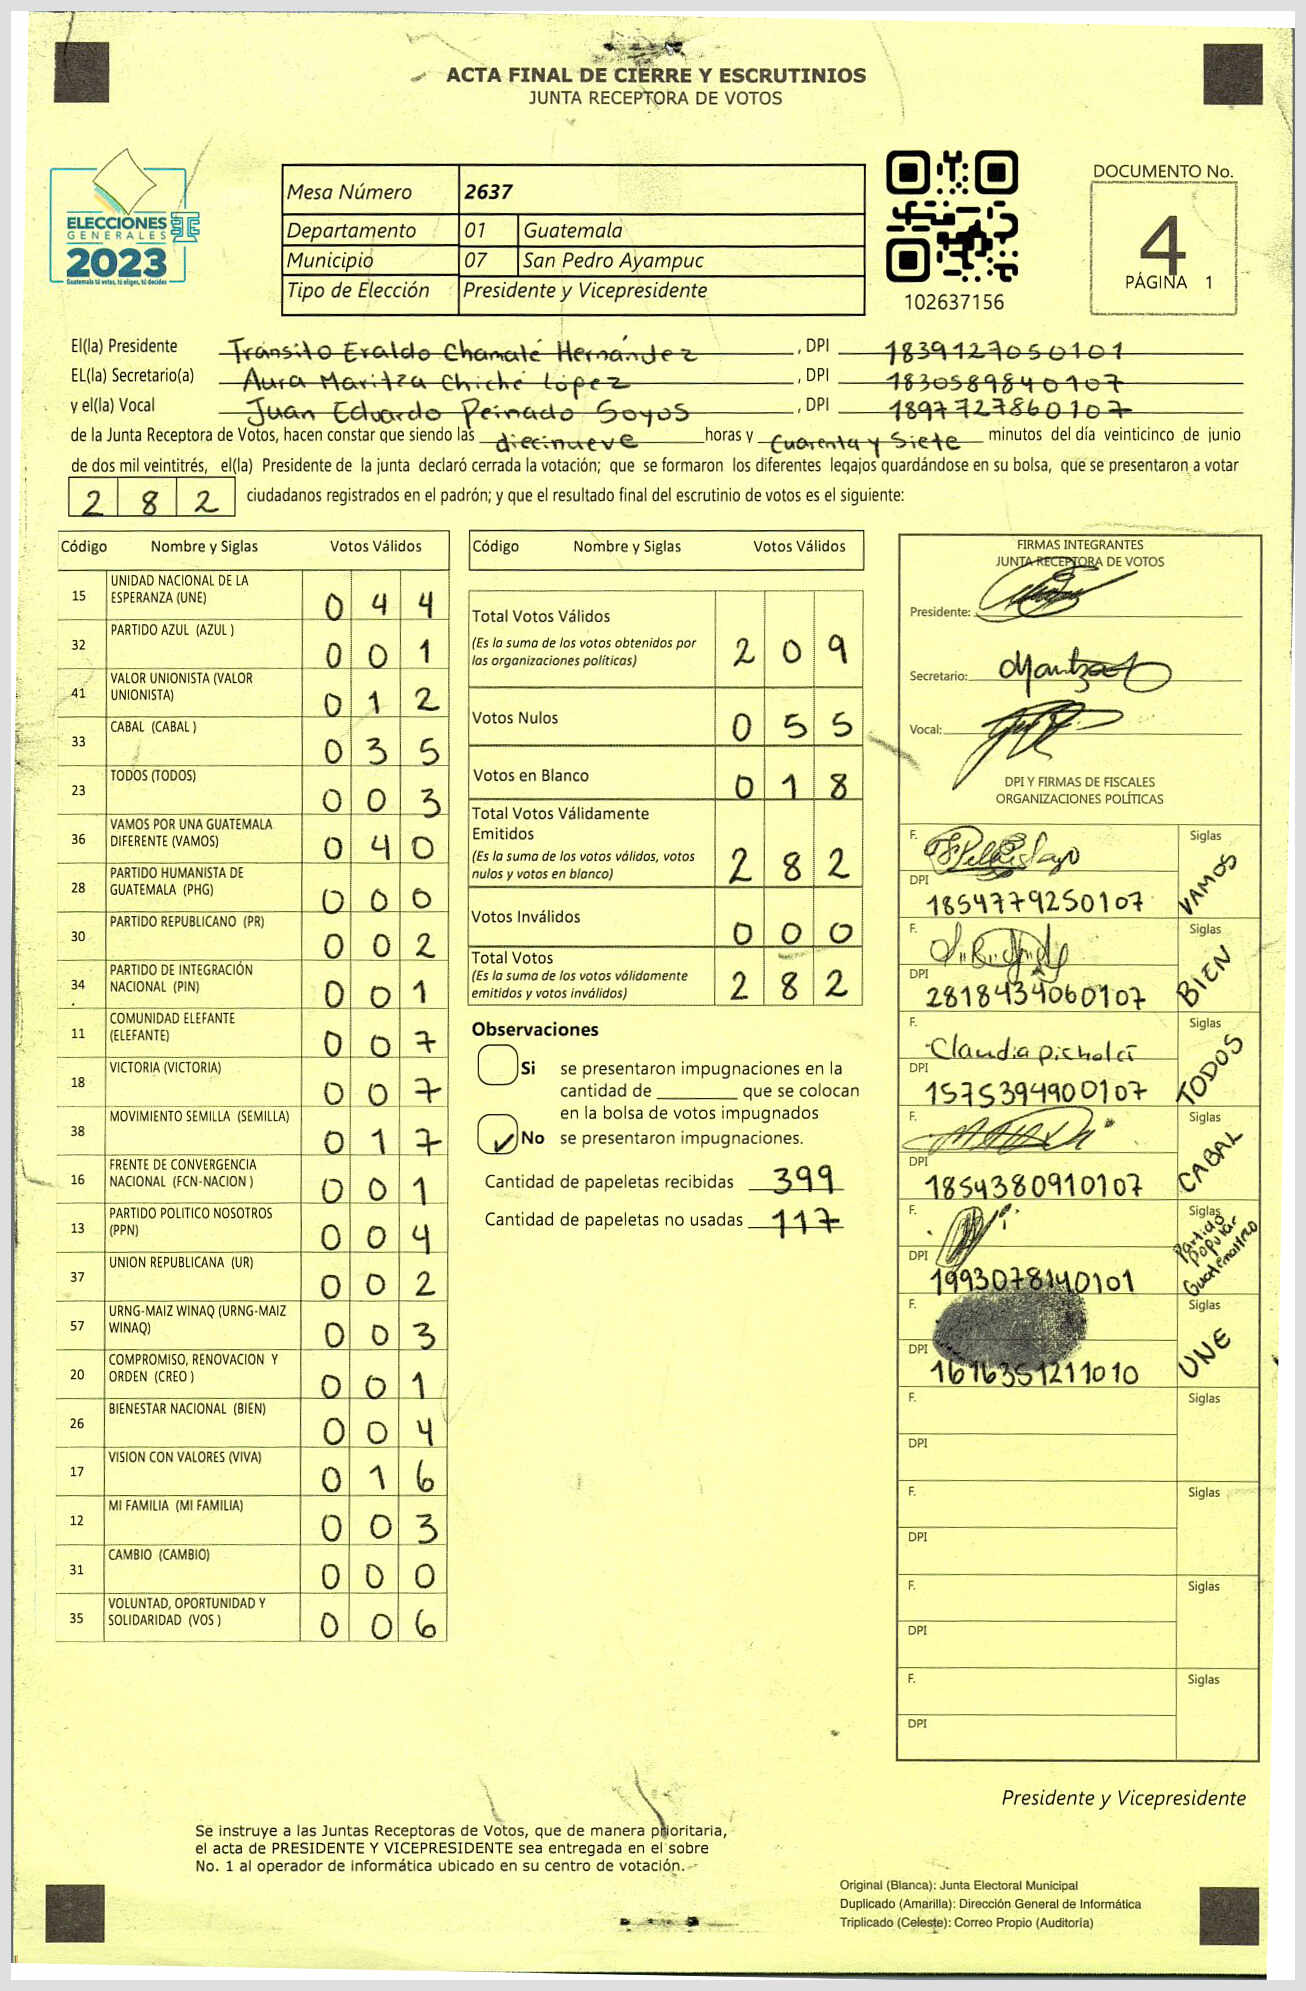 ACTA FINAL DE CIERRE Y ESCRUTINIOS
JUNTA RECEPTORA DE VOTOS
ELECCIONES
GENERALES
2023
Guatemala tú votas, tú eliges, tú decides
Mesa Número 2637
Departamento 01 Guatemala
Municipio 07 San Pedro Ayampuc
Tipo de Elección Presidente y Vicepresidente
102637156
DOCUMENTO No.
4
PÁGINA 1
El(la) Presidente Tránsito Eraldo Chamalé Hernández, DPI 1839127050101
EL(la) Secretario(a) Aura Maritza Chiché López, DPI 1830589840107
y el(la) Vocal Juan Eduardo Peinado Soyos, DPI 1897727860107
de la Junta Receptora de Votos, hacen constar que siendo las diecinueve horas y Cuarenta y Siete minutos del día veinticinco de junio
de dos mil veintitrés, el(la) Presidente de la junta declaró cerrada la votación; que se formaron los diferentes legajos guardándose en su bolsa, que se presentaron a votar
282 ciudadanos registrados en el padrón; y que el resultado final del escrutinio de votos es el siguiente:
Código Nombre y Siglas Votos Válidos
15 UNIDAD NACIONAL DE LA ESPERANZA (UNE) 044
32 PARTIDO AZUL (AZUL ) 001
41 VALOR UNIONISTA (VALOR UNIONISTA) 012
33 CABAL (CABAL ) 035
23 TODOS (TODOS) 003
36 VAMOS POR UNA GUATEMALA DIFERENTE (VAMOS) 040
28 PARTIDO HUMANISTA DE GUATEMALA (PHG) 000
30 PARTIDO REPUBLICANO (PR) 002
34 PARTIDO DE INTEGRACIÓN NACIONAL (PIN) 001
11 COMUNIDAD ELEFANTE (ELEFANTE) 007
18 VICTORIA (VICTORIA) 007
38 MOVIMIENTO SEMILLA (SEMILLA) 017
16 FRENTE DE CONVERGENCIA NACIONAL (FCN-NACION ) 001
13 PARTIDO POLITICO NOSOTROS (PPN) 004
37 UNION REPUBLICANA (UR) 002
57 URNG-MAIZ WINAQ (URNG-MAIZ WINAQ) 003
20 COMPROMISO, RENOVACION Y ORDEN (CREO ) 001
26 BIENESTAR NACIONAL (BIEN) 004
17 VISION CON VALORES (VIVA) 016
12 MI FAMILIA (MI FAMILIA) 003
31 CAMBIO (CAMBIO) 000
35 VOLUNTAD, OPORTUNIDAD Y SOLIDARIDAD (VOS ) 006
Código Nombre y Siglas Votos Válidos
Total Votos Válidos 209
(Es la suma de los votos obtenidos por
las organizaciones políticas)
Votos Nulos 055
Votos en Blanco 018
Total Votos Válidamente
Emitidos 282
(Es la suma de los votos válidos, votos
nulos y votos en blanco)
Votos Inválidos 000
Total Votos 282
(Es la suma de los votos válidamente
emitidos y votos inválidos)
Observaciones
Si se presentaron impugnaciones en la
cantidad de ________ que se colocan
en la bolsa de votos impugnados
✓ No se presentaron impugnaciones.
Cantidad de papeletas recibidas 399
Cantidad de papeletas no usadas 117
FIRMAS INTEGRANTES
JUNTA RECEPTORA DE VOTOS
Presidente:
Secretario:
Vocal:
DPI Y FIRMAS DE FISCALES
ORGANIZACIONES POLÍTICAS
F. Siglas VAMOS
DPI 1854779250107
F. Siglas BIEN
DPI 2818434060107
F. Siglas TODOS
DPI 1575394900107
F. Siglas CABAL
DPI 1854380910107
F. Siglas Partido Popular Guatemalteco
DPI 1993078140101
F. Siglas UNE
DPI 1616351211010
F. Siglas
DPI
F. Siglas
DPI
F. Siglas
DPI
F. Siglas
DPI
Presidente y Vicepresidente
Se instruye a las Juntas Receptoras de Votos, que de manera prioritaria,
el acta de PRESIDENTE Y VICEPRESIDENTE sea entregada en el sobre
No. 1 al operador de informática ubicado en su centro de votación.
Original (Blanca): Junta Electoral Municipal
Duplicado (Amarilla): Dirección General de Informática
Triplicado (Celeste): Correo Propio (Auditoria)